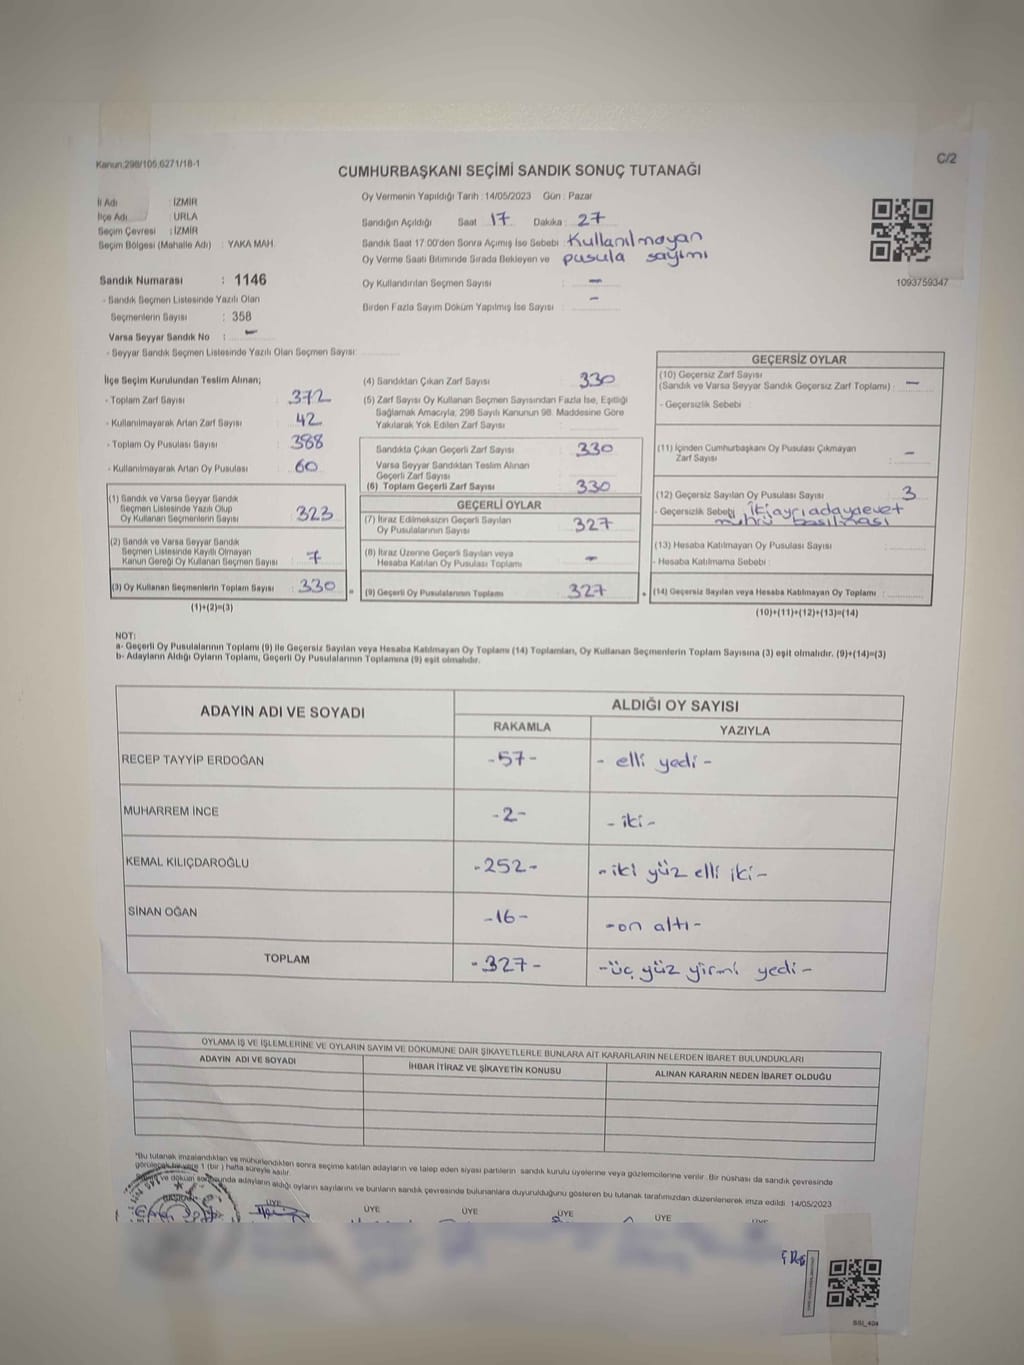 Kanun:298/105,6271/18-1
C/2
CUMHURBAŞKANI SEÇİMİ SANDIK SONUÇ TUTANAĞI
İl Adı : İZMİR
İlçe Adı : URLA
Seçim Çevresi : İZMİR
Seçim Bölgesi (Mahalle Adı) : YAKA MAH.
Oy Vermenin Yapıldığı Tarih : 14/05/2023 Gün : Pazar
Sandığın Açıldığı Saat : 17 Dakika : 27
Sandık Saat 17:00'den Sonra Açımış İse Sebebi : Kullanılmayan
Oy Verme Saati Bitiminde Sırada Bekleyen ve pusula sayımı
Oy Kullandırılan Seçmen Sayısı : -
Birden Fazla Sayım Döküm Yapılmış İse Sayısı : -
1093759347
Sandık Numarası : 1146
- Sandık Seçmen Listesinde Yazılı Olan
Seçmenlerin Sayısı : 358
Varsa Seyyar Sandık No : -
- Seyyar Sandık Seçmen Listesinde Yazılı Olan Seçmen Sayısı:
İlçe Seçim Kurulundan Teslim Alınan;
- Toplam Zarf Sayısı : 372
- Kullanılmayarak Artan Zarf Sayısı : 42
- Toplam Oy Pusulası Sayısı : 388
- Kullanılmayarak Artan Oy Pusulası : 60
(1) Sandık ve Varsa Seyyar Sandık
Seçmen Listesinde Yazılı Olup
Oy Kullanan Seçmenlerin Sayısı : 323
(2) Sandık ve Varsa Seyyar Sandık
Seçmen Listesinde Kayıtlı Olmayan
Kanun Gereği Oy Kullanan Seçmen Sayısı : 7
(3) Oy Kullanan Seçmenlerin Toplam Sayısı : 330
(1)+(2)=(3)
(4) Sandıktan Çıkan Zarf Sayısı : 330
(5) Zarf Sayısı Oy Kullanan Seçmen Sayısından Fazla İse, Eşitliği
Sağlamak Amacıyla; 298 Sayılı Kanunun 98. Maddesine Göre
Yakılarak Yok Edilen Zarf Sayısı :
Sandıkta Çıkan Geçerli Zarf Sayısı : 330
Varsa Seyyar Sandıktan Teslim Alınan
Geçerli Zarf Sayısı :
(6) Toplam Geçerli Zarf Sayısı : 330
GEÇERLİ OYLAR
(7) İtiraz Edilmeksizin Geçerli Sayılan
Oy Pusulalarının Sayısı : 327
(8) İtiraz Üzerine Geçerli Sayılan veya
Hesaba Katılan Oy Pusulası Toplamı : -
= (9) Geçerli Oy Pusulalarının Toplamı : 327
GEÇERSİZ OYLAR
(10) Geçersiz Zarf Sayısı
(Sandık ve Varsa Seyyar Sandık Geçersiz Zarf Toplamı) : -
- Geçersizlik Sebebi :
(11) İçinden Cumhurbaşkanı Oy Pusulası Çıkmayan
Zarf Sayısı : -
(12) Geçersiz Sayılan Oy Pusulası Sayısı : 3
- Geçersizlik Sebebi : iki ayrı adaya evet
mührü basılması
(13) Hesaba Katılmayan Oy Pusulası Sayısı :
- Hesaba Katılmama Sebebi :
+ (14) Geçersiz Sayılan veya Hesaba Katılmayan Oy Toplamı :
(10)+(11)+(12)+(13)=(14)
NOT:
a- Geçerli Oy Pusulalarının Toplamı (9) ile Geçersiz Sayılan veya Hesaba Katılmayan Oy Toplamı (14) Toplamları, Oy Kullanan Seçmenlerin Toplam Sayısına (3) eşit olmalıdır. (9)+(14)=(3)
b- Adayların Aldığı Oyların Toplamı, Geçerli Oy Pusulalarının Toplamına (9) eşit olmalıdır.
ADAYIN ADI VE SOYADI
ALDIĞI OY SAYISI
RAKAMLA YAZIYLA
RECEP TAYYİP ERDOĞAN -57- - elli yedi -
MUHARREM İNCE -2- - iki -
KEMAL KILIÇDAROĞLU -252- - iki yüz elli iki -
SİNAN OĞAN -16- - on altı -
TOPLAM -327- - üç yüz yirmi yedi -
OYLAMA İŞ VE İŞLEMLERİNE VE OYLARIN SAYIM VE DÖKÜMÜNE DAİR ŞİKAYETLERLE BUNLARA AİT KARARLARIN NELERDEN İBARET BULUNDUKLARI
ADAYIN ADI VE SOYADI İHBAR İTİRAZ VE ŞİKAYETİN KONUSU ALINAN KARARIN NEDEN İBARET OLDUĞU
*Bu tutanak imzalandıktan ve mühürlendikten sonra seçime katılan adayların ve talep eden siyasi partilerin sandık kurulu üyelerine veya gözlemcilerine verilir. Bir nüshası da sandık çevresinde
görülecek bir yere 1 (bir) hafta süreyle asılır.
Sayım ve döküm sonucunda adayların aldığı oyların sayılarını ve bunların sandık çevresinde bulunanlara duyurulduğunu gösteren bu tutanak tarafımızdan düzenlenerek imza edildi. 14/05/2023
BAŞKAN ÜYE ÜYE ÜYE ÜYE ÜYE ÜYE
SSI_404